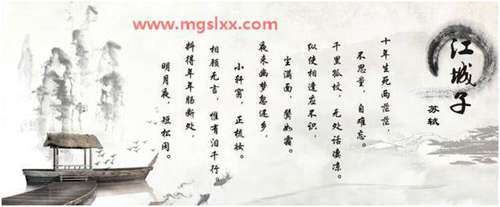 www.mgslxx.com
江城子
苏轼
十年生死两茫茫，
不思量，自难忘。
千里孤坟，无处话凄凉。
纵使相逢应不识，
尘满面，鬓如霜。
夜来幽梦忽还乡，
小轩窗，正梳妆。
相顾无言，惟有泪千行。
料得年年肠断处，
明月夜，短松冈。